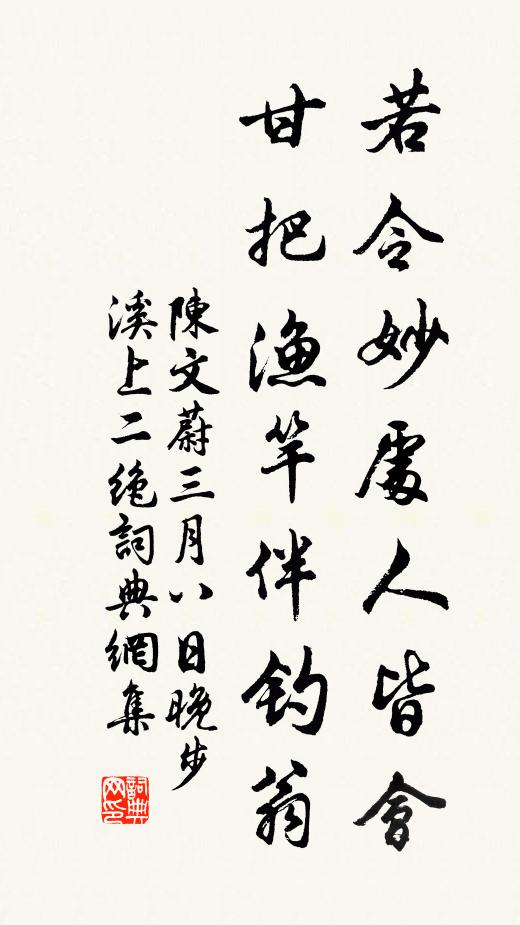 若令妙處人皆會
甘把漁竿伴釣翁
陳文蔚三月八日晚步
溪上二絶詞典網集
詞典
网印